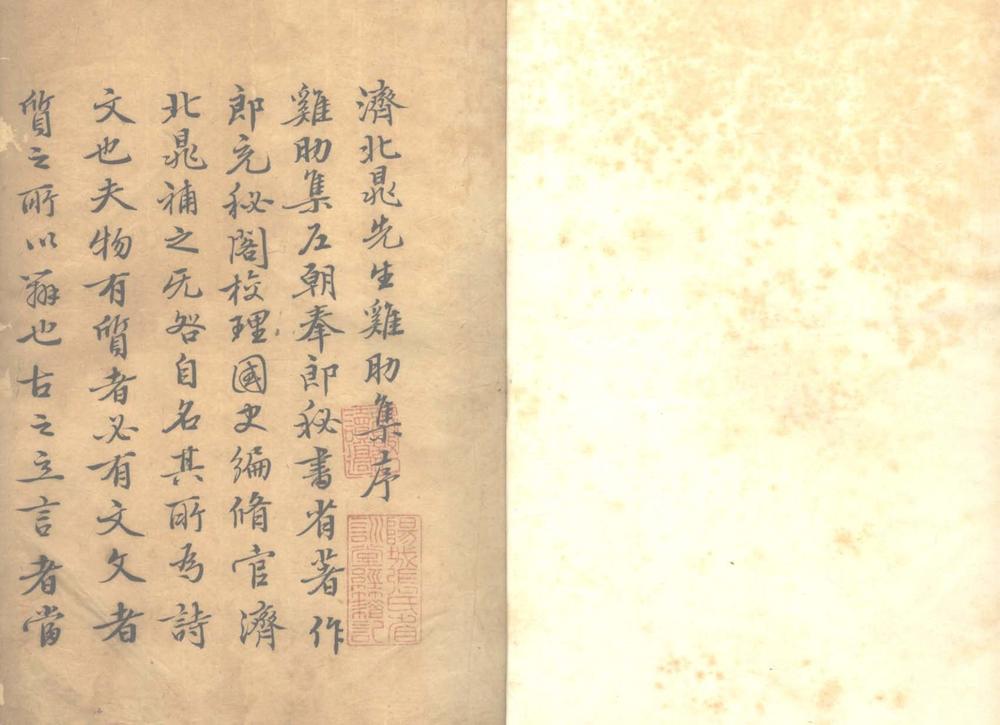 濟北晁先生雞肋集序
雞肋集左朝奉郎秘書省著作
郎充秘閣校理國史編脩官濟
北晁補之无咎自名其所為詩
文也夫物有質者必有文文者
質之所以辨也古之立言者當
讀過
陽城張氏省
訓堂經籍記